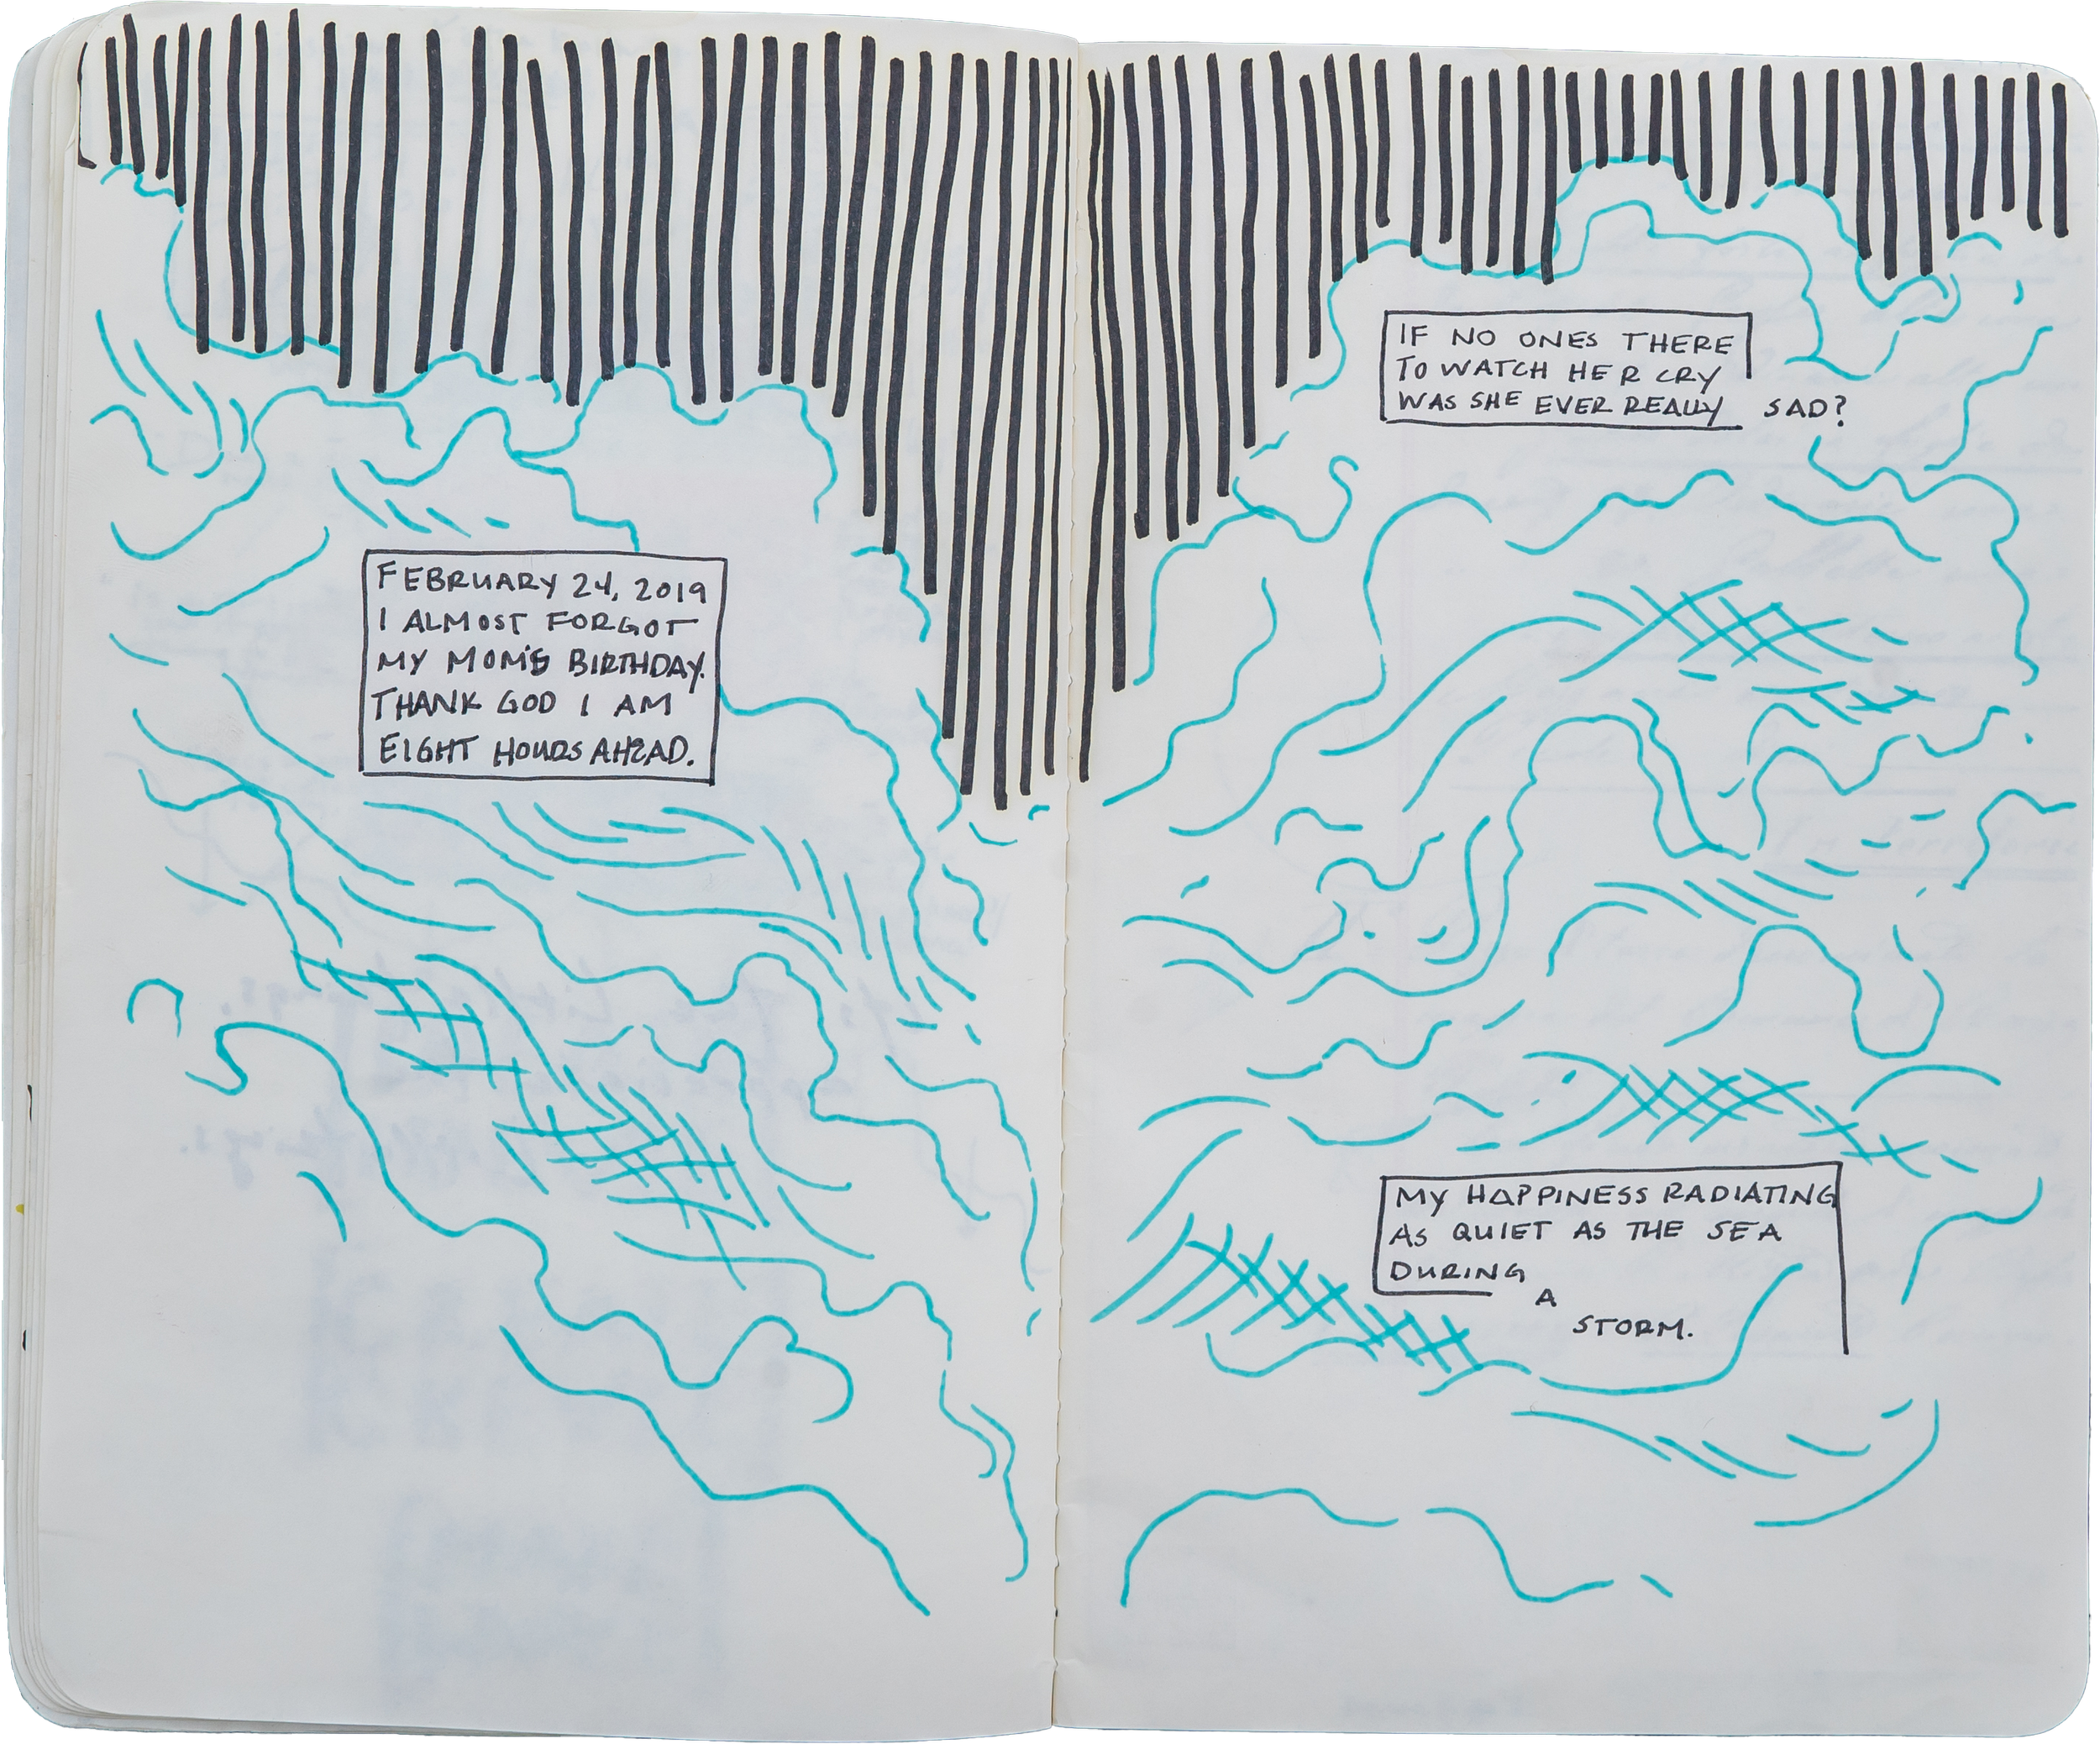 FEBRUARY 24, 2019
I ALMOST FORGOT
MY MOM'S BIRTHDAY.
THANK GOD I AM
EIGHT HOURS AHEAD.
IF NO ONES THERE
TO WATCH HER CRY
WAS SHE EVER REALLY SAD?
MY HAPPINESS RADIATING
AS QUIET AS THE SEA
DURING
A
STORM.